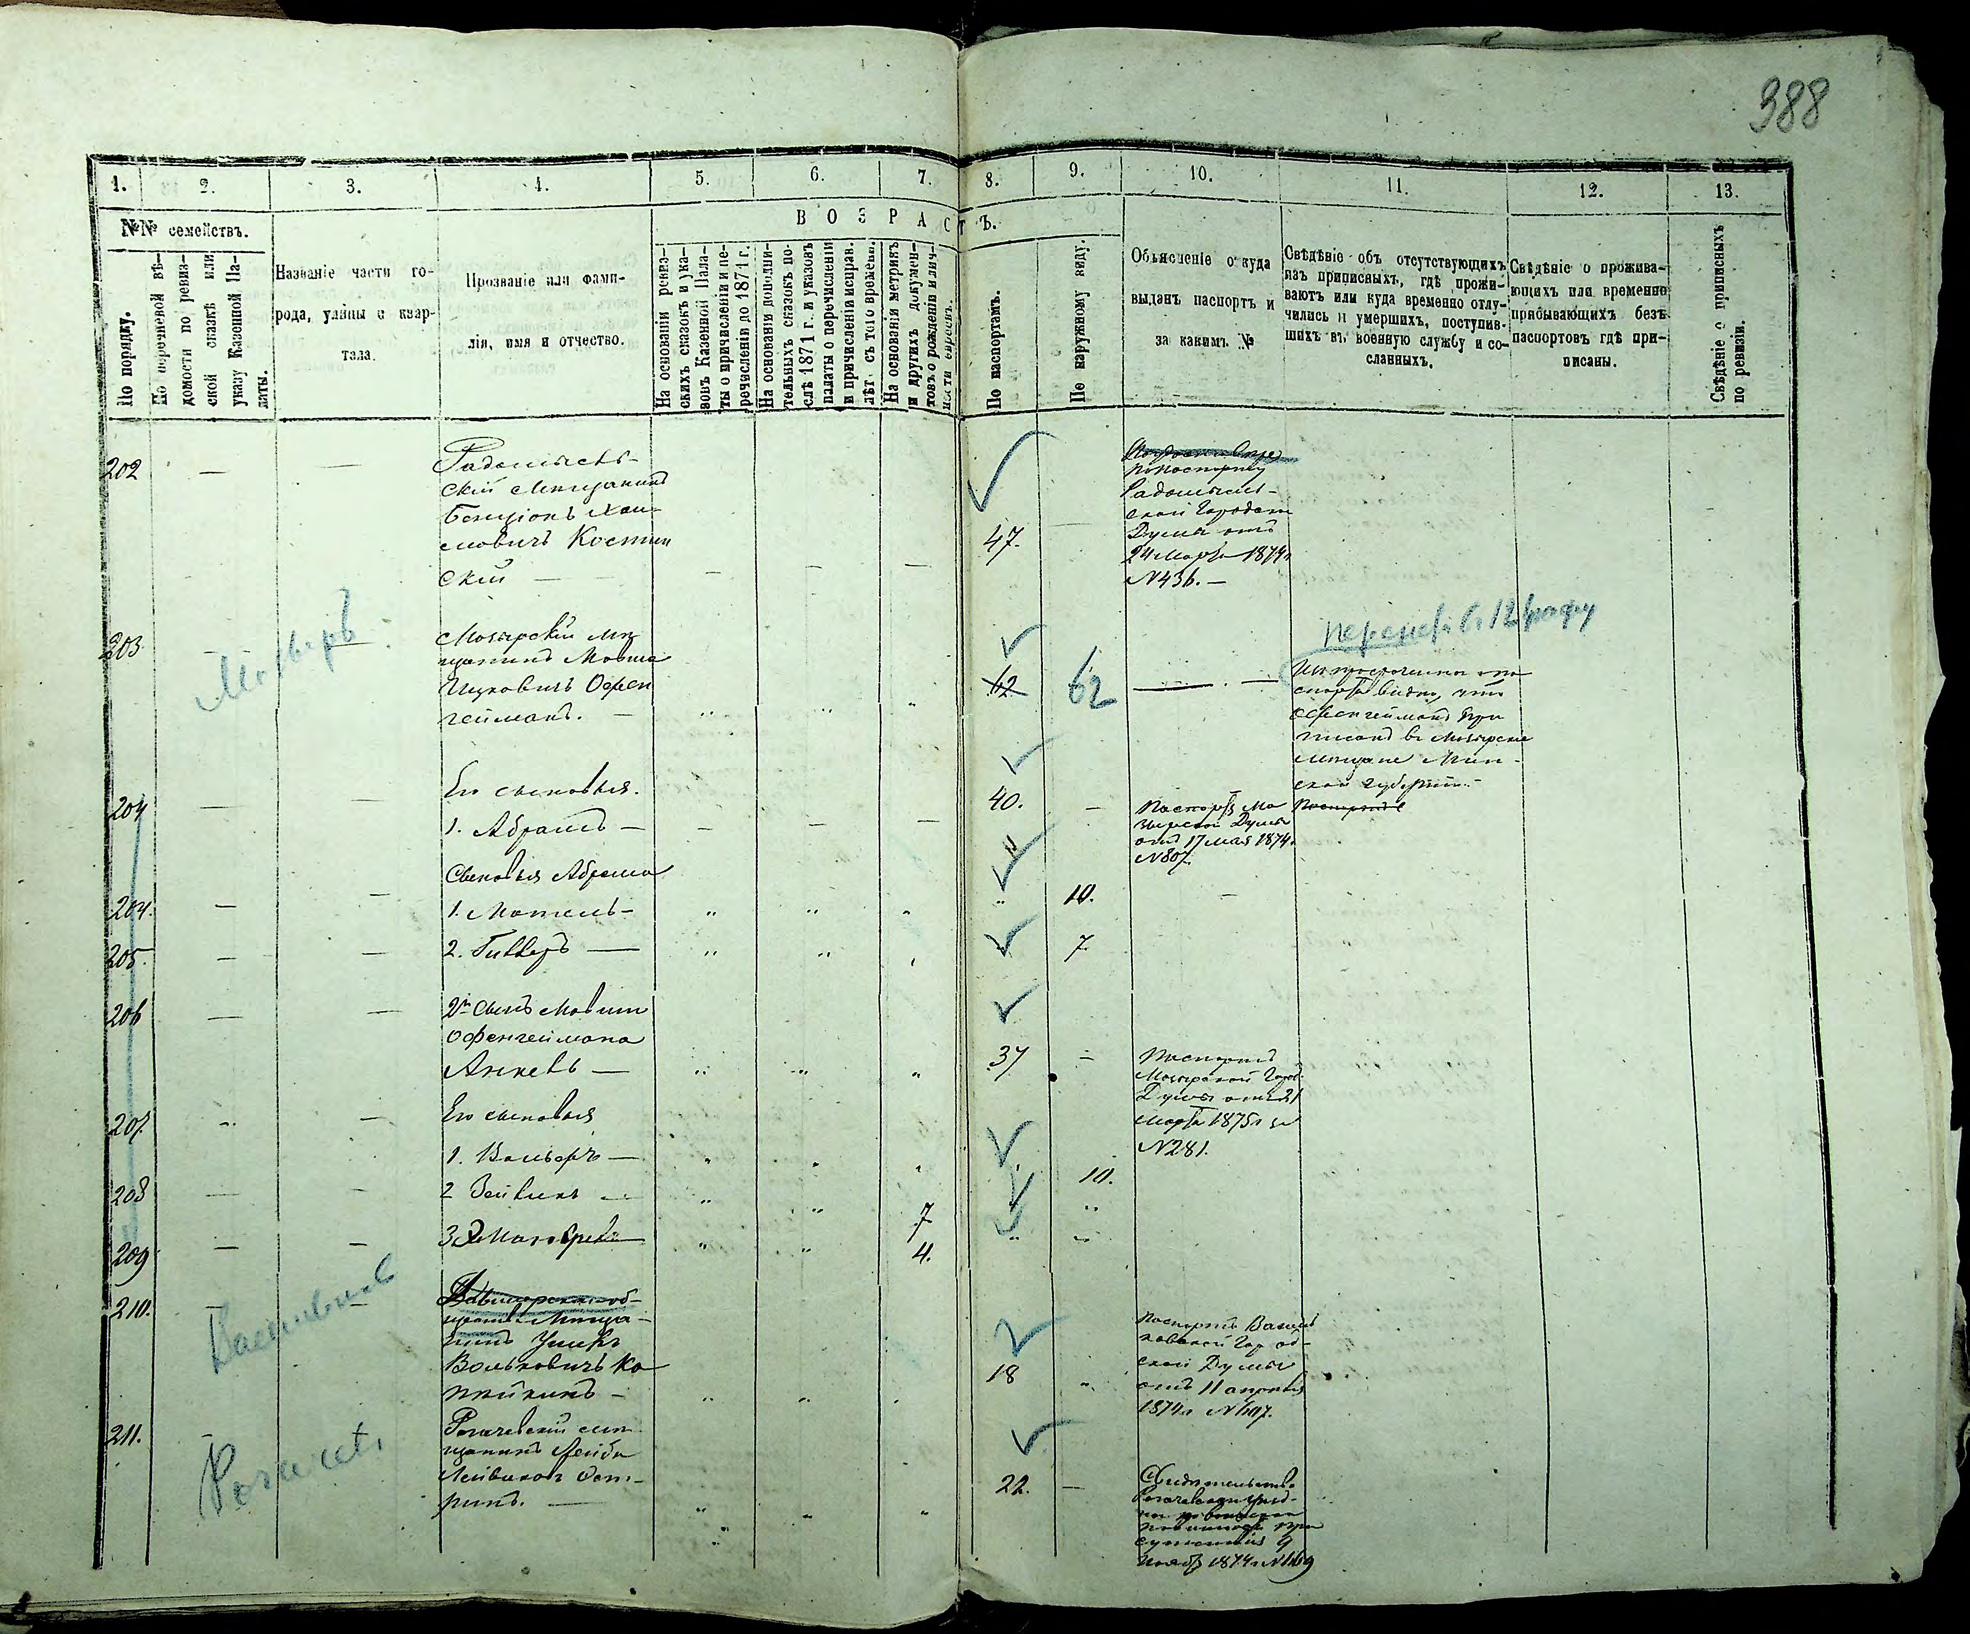 388
1. 2. 3. 4. 5. 6. 7. 8. 9. 10. 11. 12. 13.
№№ семействъ.
По порядку.
По перечневой вѣ-
домости по ревиз-
ской сказкѣ или
указу Казенной Па-
латы.
Названіе части го-
рода, улицы и квар-
тала.
Прозваніе или фами-
лія, имя и отчество.
ВОЗРАСТЪ.
На основаніи ревиз-
скихъ сказокъ и ука-
зовъ Казенной Пала-
ты о причисленіи и пе-
речисленіи до 1871 г.
На основаніи дополни-
тельныхъ сказокъ по-
слѣ 1871 г. и указовъ
палаты о перечисленіи
и причисленіи исправ.
лѣт съ того времени.
На основаніи метрикъ
и другихъ докумен-
товъ о рожденіи и лич-
ности евреевъ.
По паспортамъ.
По наружному виду.
Объясненіе откуда
выданъ паспортъ и
за какимъ №
Свѣдѣніе объ отсутствующихъ
изъ приписныхъ, гдѣ прожи-
ваютъ или куда временно отлу-
чились и умершихъ, поступив-
шихъ въ военную службу и со-
сланныхъ.
Свѣдѣніе о прожива-
ющихъ или временно
прибывающихъ безъ
паспортовъ гдѣ при-
писаны.
Свѣдѣніе о приписныхъ
по ревизіи.
202 — — Радомысль-
скій Мещанинъ
Бенціонъ Хаи-
мовичъ Костин
скій — — — — 47. —
паспорту
Радомысль-
ской Городской
Думы отъ
24 Марта 1874 г.
№ 436. —
Мозырь
203 — — Мозырскій мѣ
щанинъ Мовша
Ицковичъ Офен
гейманъ. — 62 62 —
перенес. въ 12 графу
видно, что
Офенгейманъ при
писанъ въ Мозырскіе
мещане Мин-
ской губерніи.
204 — — Его сыновья.
1. Абрамъ — — — — 40. —
Паспортъ Мо
зырской Думы
отъ 17 мая 1874 г.
№ 807.
Сыновья Абрама
204. — — 1. Мотель — 10. —
205 — — 2. Гивверъ — 7.
206 — — 2й Сынъ Мовши
Офенгеймана
Анкевъ — 37 —
Паспортъ
Мозырской Город.
Думы отъ 21
Марта 1875 г. за
№ 281.
207. — Его сыновья
1. Вольфъ — 10.
208 — — 2 Зейвикъ — 7
209 — — 3 4.
Васильков
210. — —
Мѣща-
нинъ
Вольковичъ Ко
пейкинъ — 18
Паспортъ Василь
ковской Город-
ской Думы
отъ 11 апрѣля
1874 г. № 407.
Рогачев.
211. — Рогачевскій мѣ
щанинъ Лейба
Лейвиковъ
ринъ. — 22. —
Свидетельство
Рогачевскаго уѣзд-
наго по воинской
повинности при
сутствія 9
Ноября 1874 г. № 1169